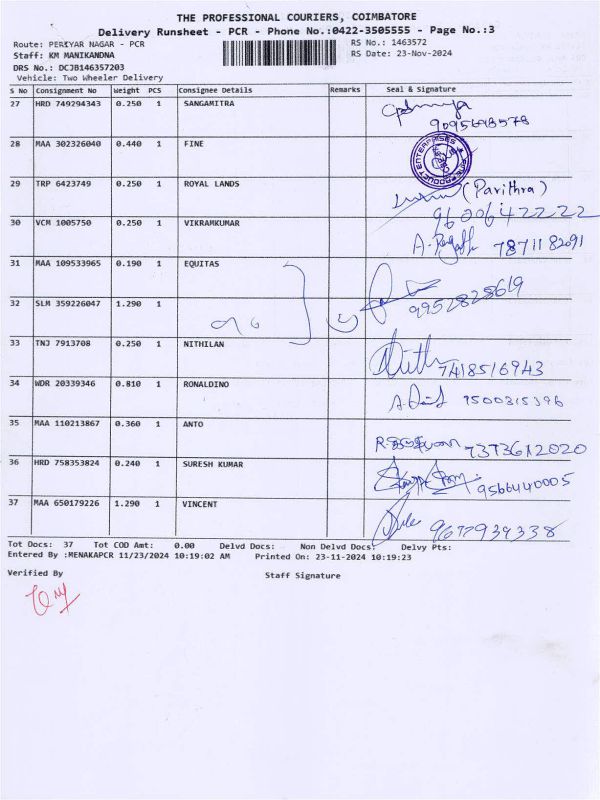 THE PROFESSIONAL COURIERS, COIMBATORE
Delivery Runsheet - PCR - Phone No.:0422-3505555 - Page No.:3
Route: PERIYAR NAGAR - PCR RS No.: 1463572
Staff: KM MANIKANDNA RS Date: 23-Nov-2024
DRS No.: DCJB146357203
Vehicle: Two Wheeler Delivery
S No Consignment No Weight PCS Consignee Details Remarks Seal & Signature
27 HRD 749294343 0.250 1 SANGAMITRA
9095698578
28 MAA 302326040 0.440 1 FINE
29 TRP 6423749 0.250 1 ROYAL LANDS (Pavithra)
9600642222
30 VCM 1005750 0.250 1 VIKRAMKUMAR
7871182091
31 MAA 109533965 0.190 1 EQUITAS
9952828619
32 SLM 359226047 1.290 1
33 TNJ 7913708 0.250 1 NITHILAN
7418516943
34 WDR 20339346 0.810 1 RONALDINO
9500315396
35 MAA 110213867 0.360 1 ANTO
7373612020
36 HRD 758353824 0.240 1 SURESH KUMAR
9566440005
37 MAA 650179226 1.290 1 VINCENT
9677939338
Tot Docs: 37 Tot COD Amt: 0.00 Delvd Docs: Non Delvd Docs: Delvy Pts:
Entered By :MENAKAPCR 11/23/2024 10:19:02 AM Printed On: 23-11-2024 10:19:23
Verified By Staff Signature